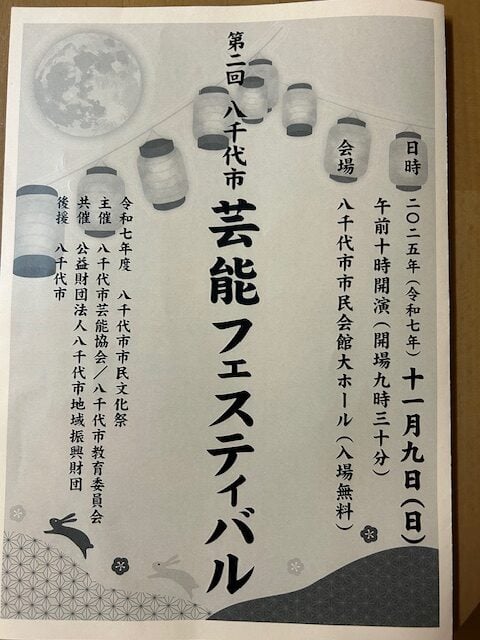 日時 二〇二五年(令和七年)十一月九日(日)
午前十時開演(開場九時三十分)
会場 八千代市市民会館大ホール(入場無料)
第二回 八千代市 芸能フェスティバル
令和七年度 八千代市市民文化祭
主催 八千代市芸能協会/八千代市教育委員会
共催 公益財団法人八千代市地域振興財団
後援 八千代市